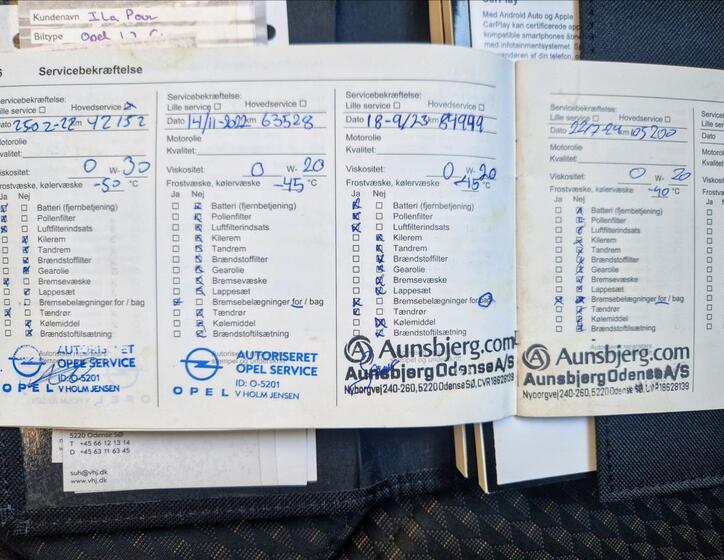 Kundenavn Ila Pour
Biltype Opel
CarPlay
Med Android Auto og Apple
CarPlay kan certificerede app
kompatible smartphones åbne
med infotainmentsystemet.
6 Servicebekræftelse
Servicebekræftelse:
Lille service Hovedservice
Dato 2502-22 km 42132
Motorolie
Kvalitet:
Viskositet: 0 W- 30
Frostvæske, kølervæske -50 °C
Ja Nej
Batteri (fjernbetjening)
Pollenfilter
Luftfilterindsats
Kilerem
Tandrem
Brændstoffilter
Gearolie
Bremsevæske
Lappesæt
Bremsebelægninger for / bag
Tændrør
Kølemiddel
Brændstoftilsætning
AUTORISERET
OPEL SERVICE
ID: O-5201
OPEL V HOLM JENSEN
Servicebekræftelse:
Lille service Hovedservice
Dato 14/11-2022 km 63528
Motorolie
Kvalitet:
Viskositet: 0 W- 20
Frostvæske, kølervæske -45 °C
Ja Nej
Batteri (fjernbetjening)
Pollenfilter
Luftfilterindsats
Kilerem
Tandrem
Brændstoffilter
Gearolie
Bremsevæske
Lappesæt
Bremsebelægninger for / bag
Tændrør
Kølemiddel
Brændstoftilsætning
AUTORISERET
OPEL SERVICE
ID: O-5201
OPEL V HOLM JENSEN
Servicebekræftelse:
Lille service Hovedservice
Dato 18-9/23 km 84999
Motorolie
Kvalitet:
Viskositet: 0 W- 20
Frostvæske, kølervæske -45 °C
Ja Nej
Batteri (fjernbetjening)
Pollenfilter
Luftfilterindsats
Kilerem
Tandrem
Brændstoffilter
Gearolie
Bremsevæske
Lappesæt
Bremsebelægninger for / bag
Tændrør
Kølemiddel
Brændstoftilsætning
Aunsbjerg.com
Aunsbjerg Odense A/S
Nyborgvej 240-260, 5220 Odense SØ, CVR 18628139
Servicebekræftelse:
Lille service Hovedservice
Dato 22/7-24 km 105200
Motorolie
Kvalitet:
Viskositet: 0 W- 20
Frostvæske, kølervæske -40 °C
Ja Nej
Batteri (fjernbetjening)
Pollenfilter
Luftfilterindsats
Kilerem
Tandrem
Brændstoffilter
Gearolie
Bremsevæske
Lappesæt
Bremsebelægninger for / bag
Tændrør
Kølemiddel
Brændstoftilsætning
Aunsbjerg.com
Aunsbjerg Odense A/S
Nyborgvej 240-260, 5220 Odense SØ, CVR 18628139
5220 Odense SØ
T +45 66 12 13 14
D +45 63 11 63 45
suh@vhj.dk
www.vhj.dk